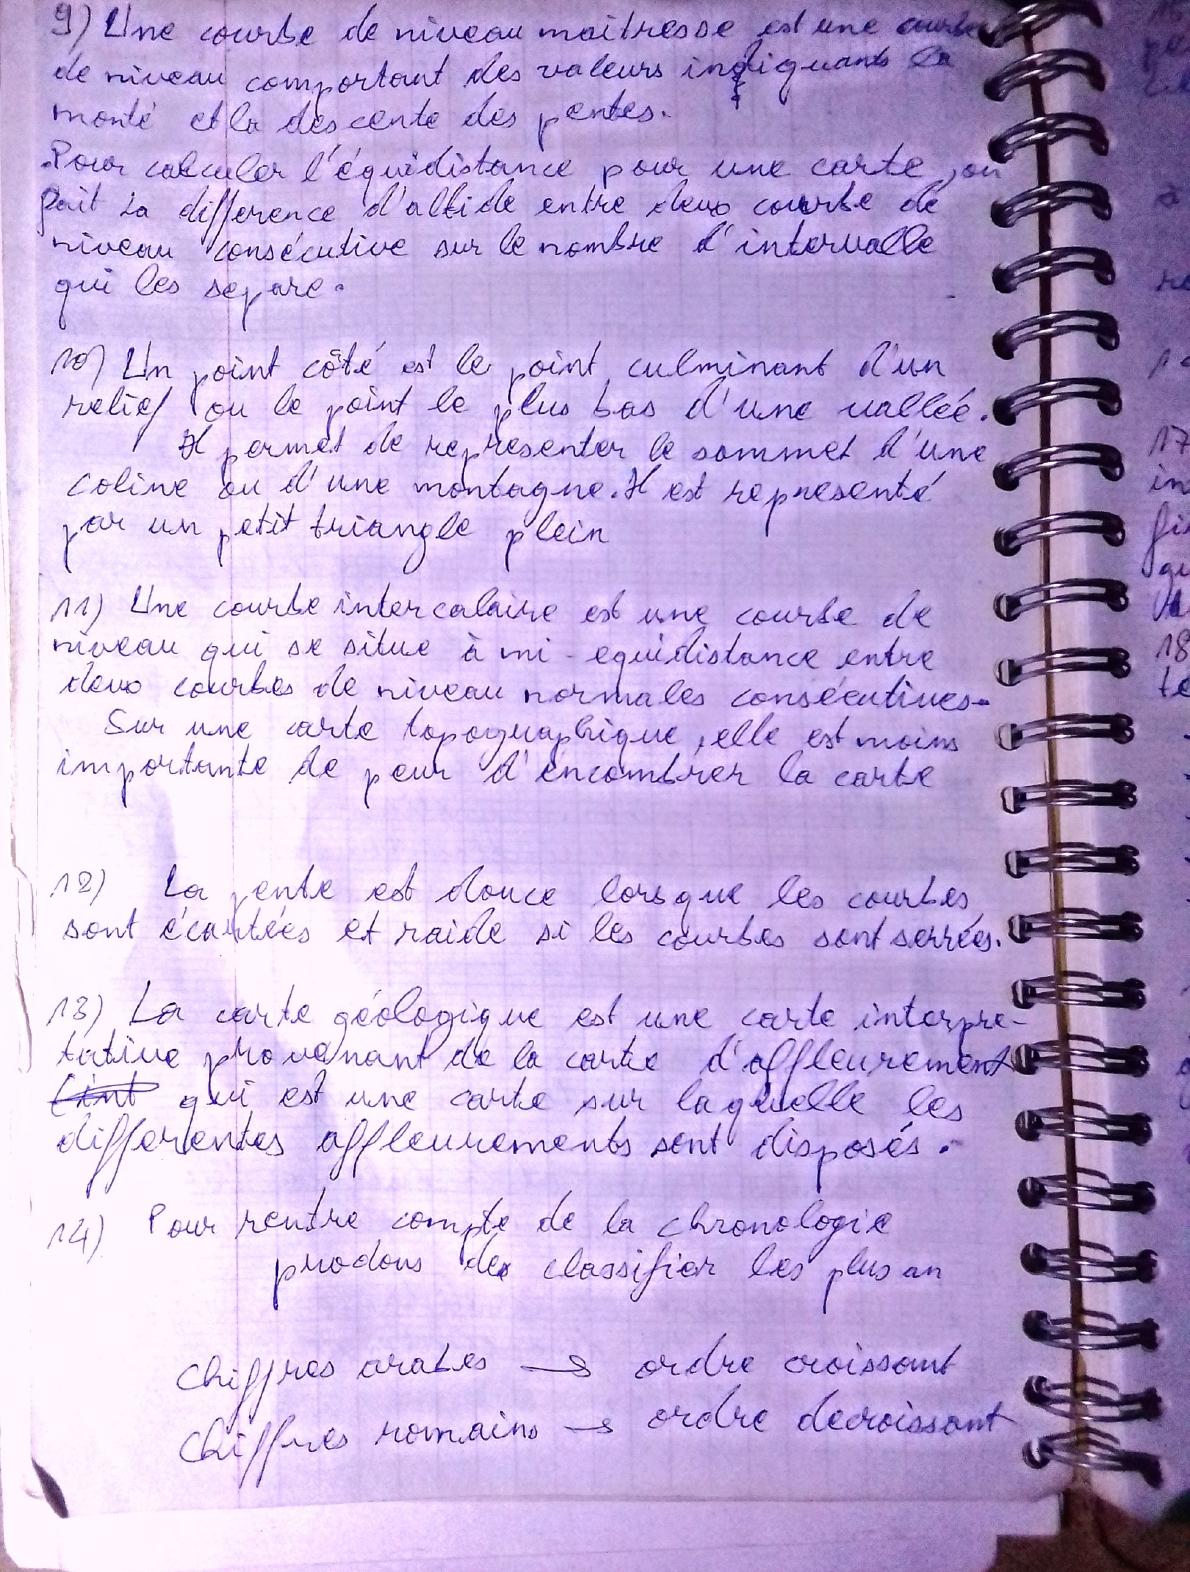 9) Une courbe de niveau maitresse est une courbe
de niveau comportant des valeurs indiquants la
monté et la descente des pentes.
Pour calculer l'équidistance pour une carte, on
fait la difference d'altide entre deux courbe de
niveau consécutive sur le nombre d'intervalle
qui les separe.
10) Un point côté est le point culminant d'un
relief ou le point le plus bas d'une vallée.
Il permet de representer le sommet d'une
coline ou d'une montagne. Il est representé
par un petit triangle plein
11) Une courbe intercalaire est une courbe de
niveau qui se situe à mi-equidistance entre
deux courbes de niveau normales consécutives.
Sur une carte topographique, elle est moins
importante de peur d'encombrer la carte
12) La pente est douce lorsque les courbes
sont écartées et raide si les courbes sont serrées.
13) La carte géologique est une carte interpre-
tative provenant de la carte d'affleurement
qui est une carte sur laquelle les
differentes affleurements sont disposés.
14) Pour rentre compte de la chronologie
des classifier les plus an
chiffres arabes → ordre croissant
chiffres romains → ordre decroissant